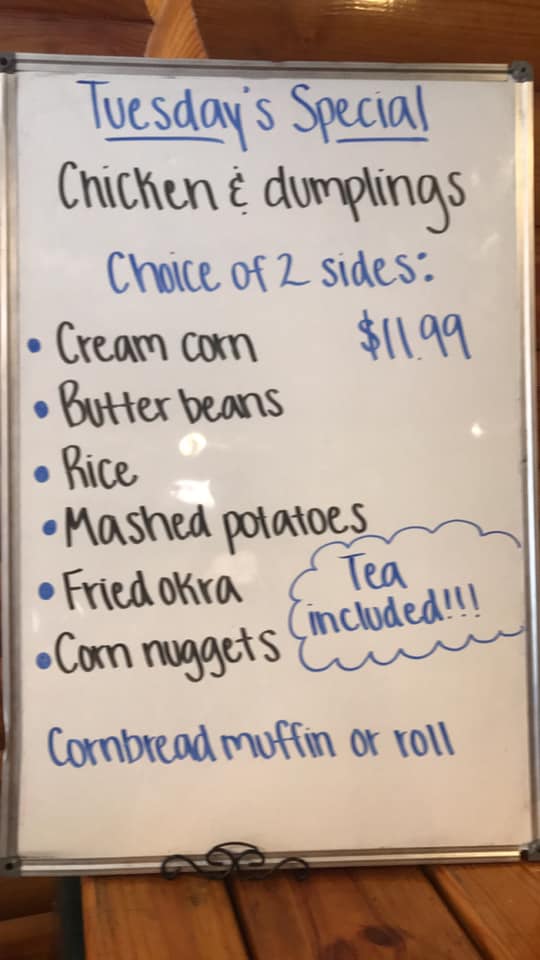 Tuesday's Special
Chicken & dumplings
Choice of 2 sides:
• Cream corn $11.99
• Butter beans
• Rice
• Mashed potatoes
• Fried okra
• Corn nuggets
Tea
included!!!
Cornbread muffin or roll